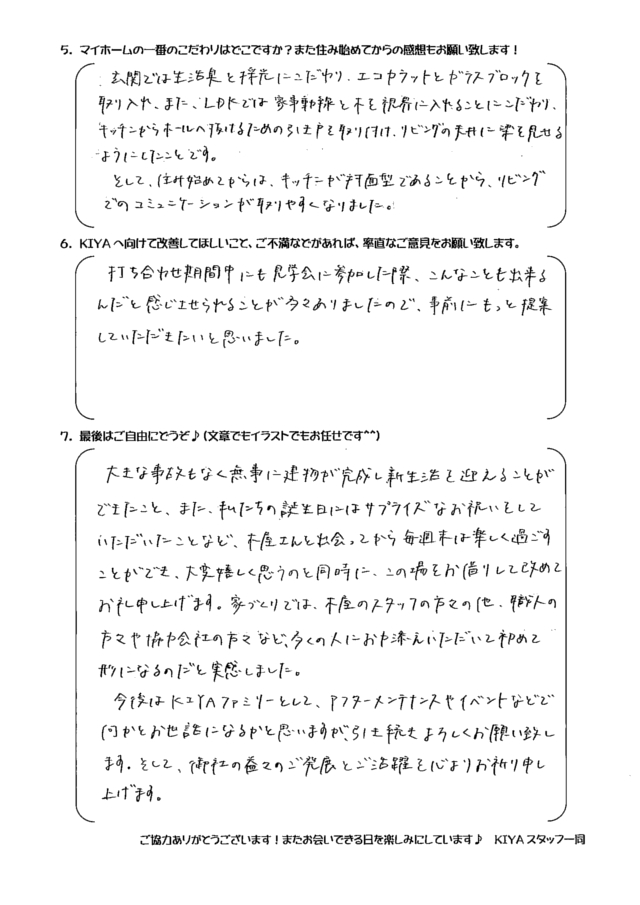 5. マイホームの一番のこだわりはどこですか？また住み始めてからの感想もお願い致します！
玄関では生活臭と採光にこだわり、エコカラットとガラスブロックを
取り入れ、また、LDKでは家事動線と木を視界に入れることにこだわり、
キッチンからホールへ抜けるための引き戸を取り付け、リビングの天井に梁を見せる
ようにしたことです。
そして、住み始めてからは、キッチンが対面型であることから、リビング
でのコミュニケーションが取りやすくなりました。
6. KIYAへ向けて改善してほしいこと、ご不満などがあれば、率直なご意見をお願い致します。
打ち合わせ期間中にも見学会に参加した際、こんなことも出来る
んだと感じさせられることが多々ありましたので、事前にもっと提案
していただきたいと思いました。
7. 最後はご自由にどうぞ♪(文章でもイラストでもお任せです^^)
大きな事故もなく無事に建物が完成し新生活を迎えることが
できたこと、また、私たちの誕生日にはサプライズなお祝いをして
いただいたことなど、木屋さんと出会ってから毎週末は楽しく過ごす
ことができ、大変嬉しく思うのと同時に、この場をお借りして改めて
お礼申し上げます。家づくりでは、木屋のスタッフの方々の他、職人の
方々や協力会社の方々など、多くの人にお力添えいただいて初めて
形になるのだと実感しました。
今後はKIYAファミリーとして、アフターメンテナンスやイベントなどで
何かとお世話になるかと思いますが、引き続きよろしくお願い致し
ます。そして、御社の益々のご発展とご活躍を心よりお祈り申し
上げます。
ご協力ありがとうございます！またお会いできる日を楽しみにしています♪ KIYAスタッフ一同